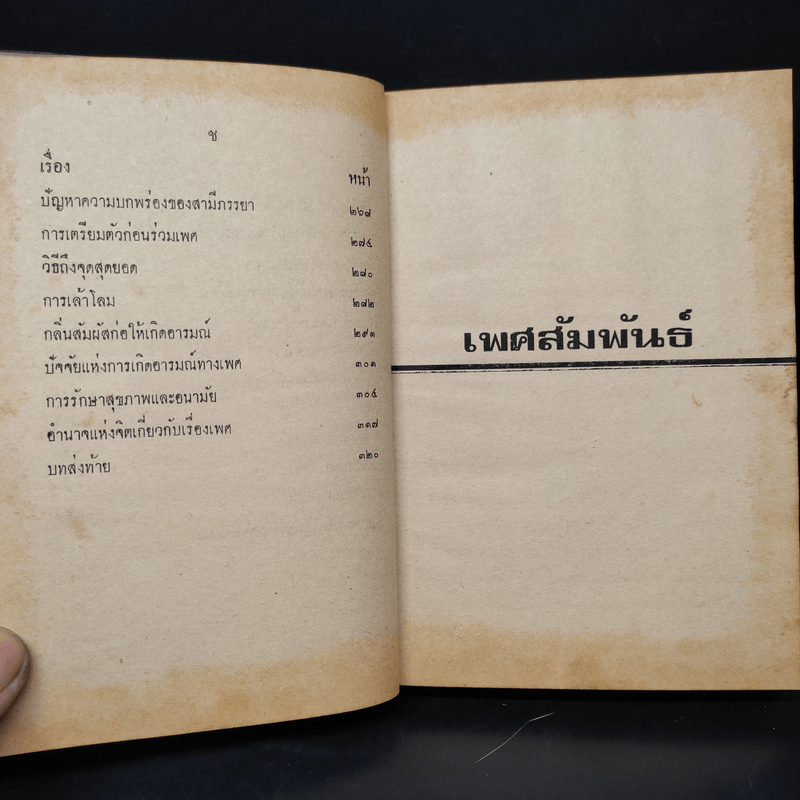 ช
เรื่อง หน้า
ปัญหาความบกพร่องของสามีภรรยา ๒๖๗
การเตรียมตัวก่อนร่วมเพศ ๒๗๔
วิธีถึงจุดสุดยอด ๒๘๐
การเล้าโลม ๒๘๒
กลิ่นสัมผัสก่อให้เกิดอารมณ์ ๒๙๑
ปัจจัยแห่งการเกิดอารมณ์ทางเพศ ๓๐๑
การรักษาสุขภาพและอนามัย ๓๐๔
อำนาจแห่งจิตเกี่ยวกับเรื่องเพศ ๓๑๗
บทส่งท้าย ๓๒๐
เพศสัมพันธ์